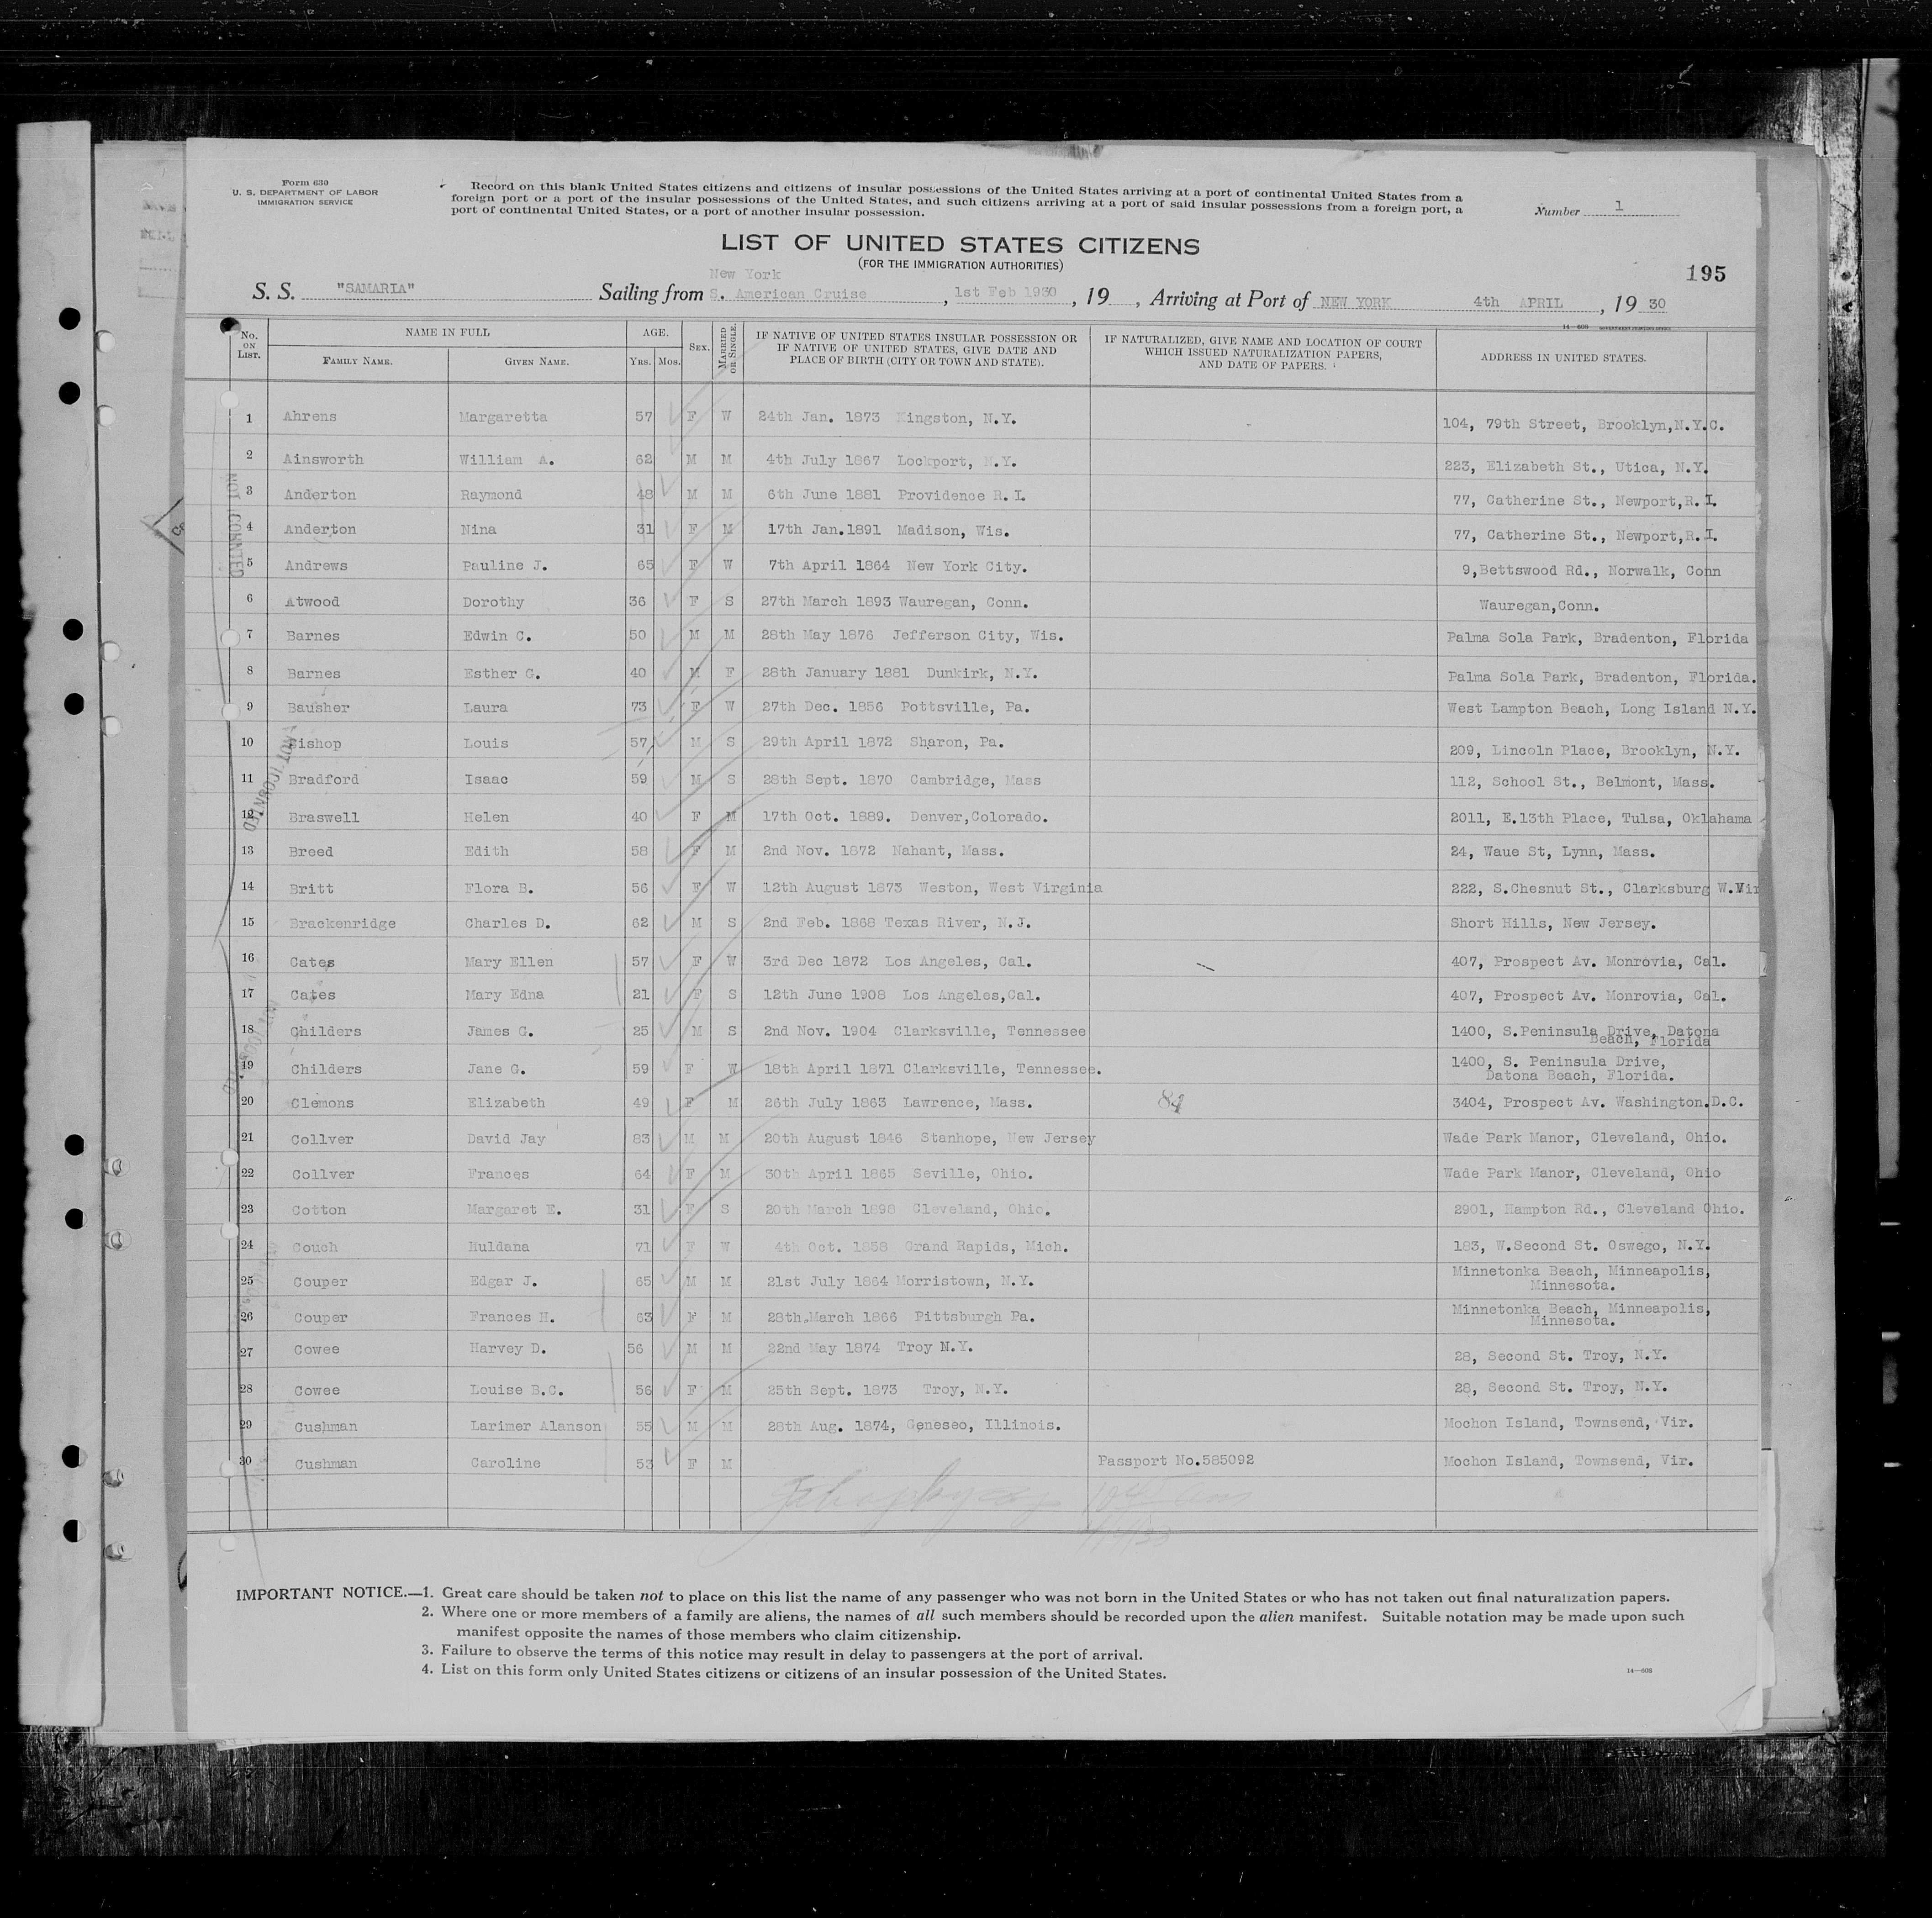 Form 630
U. S. DEPARTMENT OF LABOR
IMMIGRATION SERVICE
Record on this blank United States citizens and citizens of insular possessions of the United States arriving at a port of continental United States from a
foreign port or a port of the insular possessions of the United States, and such citizens arriving at a port of said insular possessions from a foreign port, a
port of continental United States, or a port of another insular possession.
Number 1
LIST OF UNITED STATES CITIZENS
(FOR THE IMMIGRATION AUTHORITIES)
195
New York
S. S. "SAMARIA" Sailing from S. American Cruise, 1st Feb 1930, 19 , Arriving at Port of NEW YORK 4th APRIL, 19 30
No. ON LIST. NAME IN FULL FAMILY NAME. GIVEN NAME. AGE. YRS. MOS. SEX. MARRIED OR SINGLE. IF NATIVE OF UNITED STATES INSULAR POSSESSION OR IF NATIVE OF UNITED STATES, GIVE DATE AND PLACE OF BIRTH (CITY OR TOWN AND STATE). IF NATURALIZED, GIVE NAME AND LOCATION OF COURT WHICH ISSUED NATURALIZATION PAPERS, AND DATE OF PAPERS. ADDRESS IN UNITED STATES.
1 Ahrens Margaretta 57 F W 24th Jan. 1873 Kingston, N.Y. 104, 79th Street, Brooklyn,N.Y.C.
2 Ainsworth William A. 62 M M 4th July 1867 Lockport, N.Y. 223, Elizabeth St., Utica, N.Y.
3 Anderton Raymond 48 M M 6th June 1881 Providence R.I. 77, Catherine St., Newport,R.I.
4 Anderton Nina 31 F M 17th Jan.1891 Madison, Wis. 77, Catherine St., Newport,R.I.
5 Andrews Pauline J. 65 F W 7th April 1864 New York City. 9,Bettswood Rd., Norwalk, Conn
6 Atwood Dorothy 36 F S 27th March 1893 Wauregan, Conn. Wauregan,Conn.
7 Barnes Edwin C. 50 M M 28th May 1876 Jefferson City, Wis. Palma Sola Park, Bradenton, Florida
8 Barnes Esther G. 40 M F 28th January 1881 Dunkirk, N.Y. Palma Sola Park, Bradenton, Florida.
9 Bausher Laura 73 F W 27th Dec. 1856 Pottsville, Pa. West Lampton Beach, Long Island N.Y.
10 Bishop Louis 57 M S 29th April 1872 Sharon, Pa. 209, Lincoln Place, Brooklyn, N.Y.
11 Bradford Isaac 59 M S 28th Sept. 1870 Cambridge, Mass 112, School St., Belmont, Mass.
12 Braswell Helen 40 F M 17th Oct. 1889. Denver,Colorado. 2011, E.13th Place, Tulsa, Oklahama
13 Breed Edith 58 F M 2nd Nov. 1872 Nahant, Mass. 24, Waue St, Lynn, Mass.
14 Britt Flora B. 56 F W 12th August 1873 Weston, West Virginia 222, S.Chesnut St., Clarksburg W.Vir
15 Brackenridge Charles D. 62 M S 2nd Feb. 1868 Texas River, N.J. Short Hills, New Jersey.
16 Cates Mary Ellen 57 F W 3rd Dec 1872 Los Angeles, Cal. 407, Prospect Av. Monrovia, Cal.
17 Cates Mary Edna 21 F S 12th June 1908 Los Angeles,Cal. 407, Prospect Av. Monrovia, Cal.
18 Childers James G. 25 M S 2nd Nov. 1904 Clarksville, Tennessee 1400, S.Peninsula Drive, Datona
Beach, Florida
19 Childers Jane G. 59 F W 18th April 1871 Clarksville, Tennessee. 1400, S. Peninsula Drive,
Datona Beach, Florida.
20 Clemons Elizabeth 49 F M 26th July 1863 Lawrence, Mass. 84 3404, Prospect Av. Washington.D.C.
21 Collver David Jay 83 M M 20th August 1846 Stanhope, New Jersey Wade Park Manor, Cleveland, Ohio.
22 Collver Frances 64 F M 30th April 1865 Seville, Ohio. Wade Park Manor, Cleveland, Ohio
23 Cotton Margaret E. 31 F S 20th March 1898 Cleveland, Ohio. 2901, Hampton Rd., Cleveland Ohio.
24 Couch Huldana 71 F W 4th Oct. 1858 Grand Rapids, Mich. 183, W.Second St. Oswego, N.Y.
25 Couper Edgar J. 65 M M 21st July 1864 Morristown, N.Y. Minnetonka Beach, Minneapolis,
Minnesota.
26 Couper Frances H. 63 F M 28th.March 1866 Pittsburgh Pa. Minnetonka Beach, Minneapolis,
Minnesota.
27 Cowee Harvey D. 56 M M 22nd May 1874 Troy N.Y. 28, Second St. Troy, N.Y.
28 Cowee Louise B.C. 56 F M 25th Sept. 1873 Troy, N.Y. 28, Second St. Troy, N.Y.
29 Cushman Larimer Alanson 55 M M 28th Aug. 1874, Geneseo, Illinois. Mochon Island, Townsend, Vir.
30 Cushman Caroline 53 F M Passport No.585092 Mochon Island, Townsend, Vir.
NOT COUNTED
NOT COUNTED
IMPORTANT NOTICE.—1. Great care should be taken not to place on this list the name of any passenger who was not born in the United States or who has not taken out final naturalization papers.
2. Where one or more members of a family are aliens, the names of all such members should be recorded upon the alien manifest. Suitable notation may be made upon such
manifest opposite the names of those members who claim citizenship.
3. Failure to observe the terms of this notice may result in delay to passengers at the port of arrival.
4. List on this form only United States citizens or citizens of an insular possession of the United States.
14—608